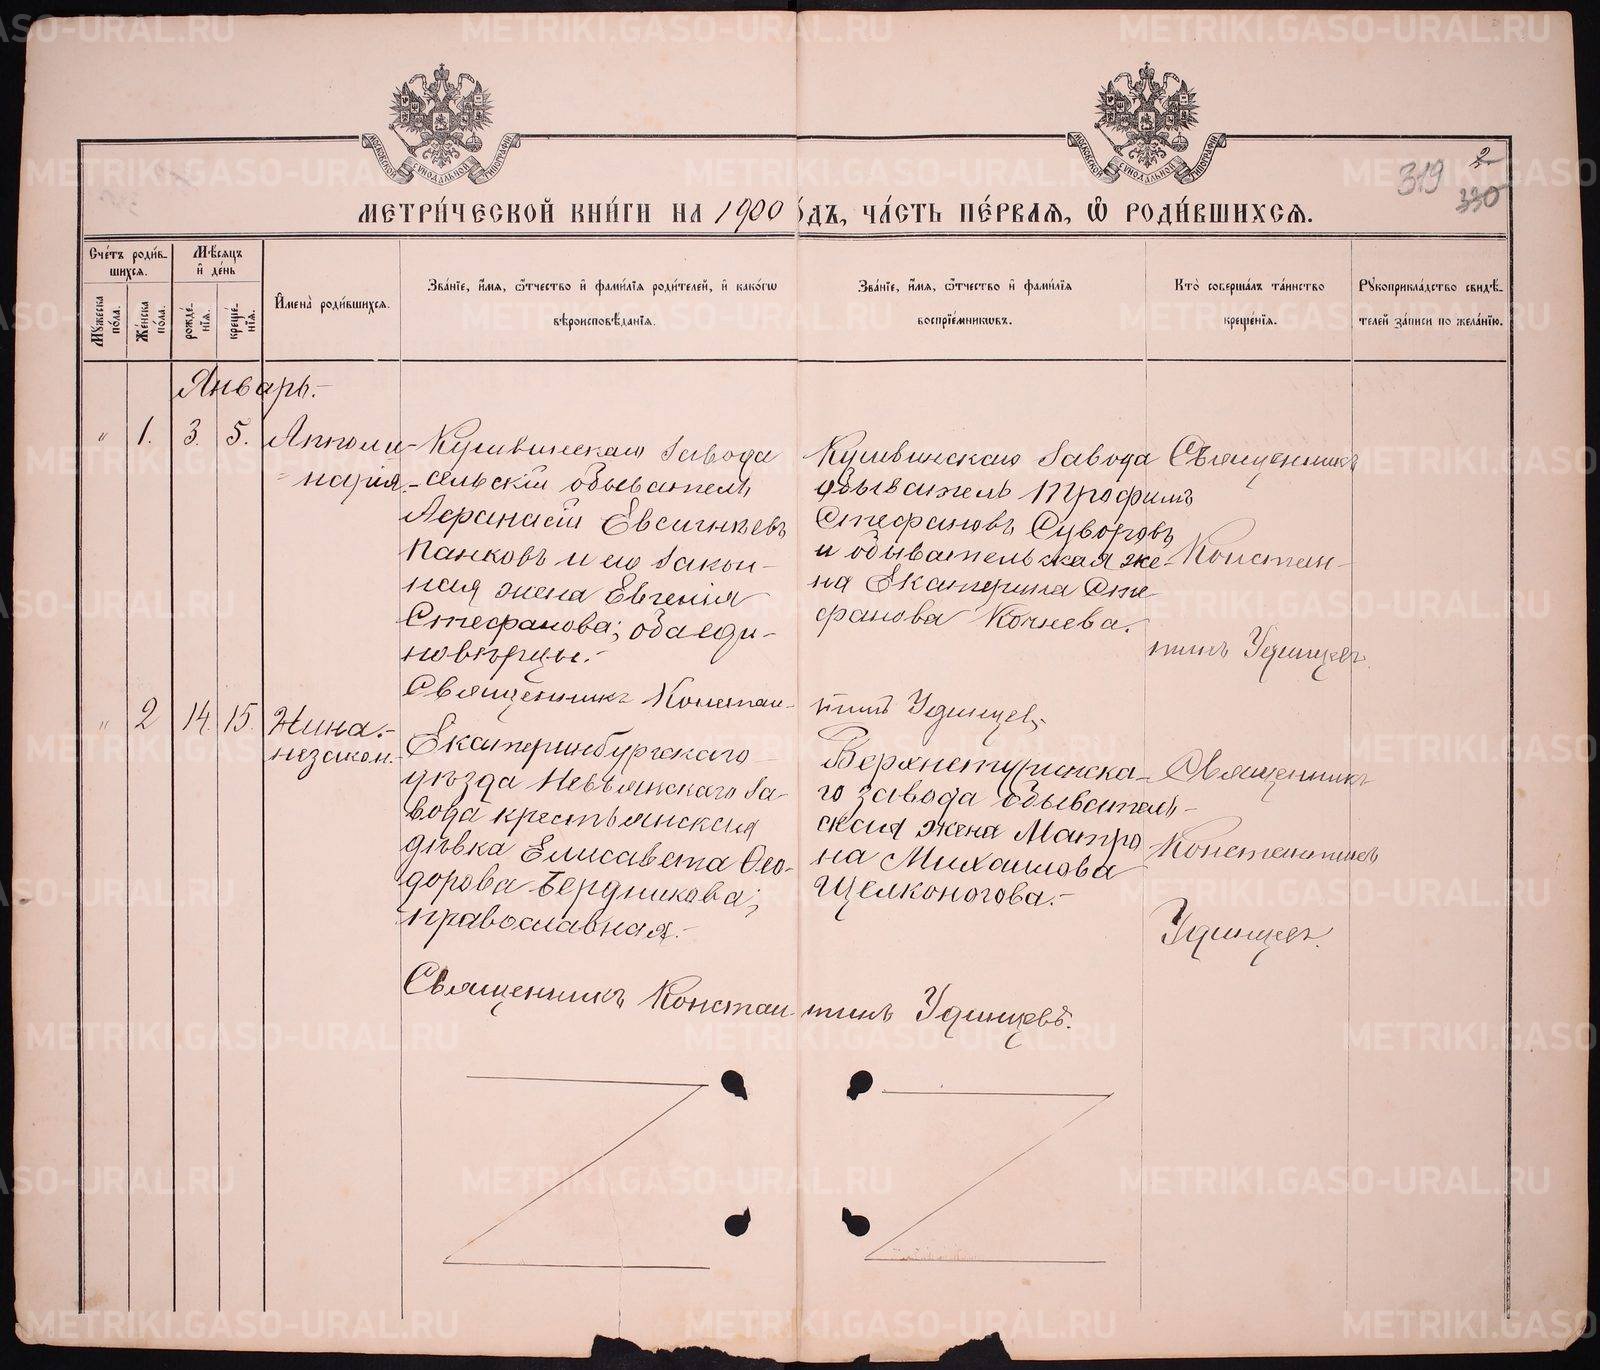 МОСКОВСКОЙ СѴНОДАЛЬНОЙ ТИПОГРАФІИ
МОСКОВСКОЙ СѴНОДАЛЬНОЙ ТИПОГРАФІИ
319
2
330
МЕТРИ́ЧЕСКОЙ КНИ́ГИ НА 1900 ГО́ДЪ, ЧА́СТЬ ПЕ́РВАЯ, Ѽ РОДИ́ВШИХСЯ.
Сче́тъ роди́в-
шихся.
Мѣсяцъ
и҆ де́нь
Мꙋжеска по́ла.
Же́нска по́ла.
рожде́-
нїѧ.
креще́-
нїѧ.
И҆мена̀ роди́вшихся.
Зва́нїе, и҆́мя, ѻ҆́тчество и҆ фами́лїя роди́телей, и҆ како́гѡ
вѣроисповѣ́данїя.
Зва́нїе, и҆́мя, ѻ҆́тчество и҆ фами́лїя
воспрїе́мникѡвъ.
Кто̀ соверша́лъ та́инство
креще́нїя.
Рꙋкоприкла́дство свидѣ́-
телей за́писи по жела́нїю.
Январь.-
"
1.
3.
5.
Апполи-
нарія.-
Кушвинскаго завода
сельскій обыватель
Афанасій Евсигніевъ
Панковъ и его закон-
ная жена Евгенія
Стефанова; оба еди-
новѣрцы.-
Кушвинскаго завода
обыватель Трофимъ
Стефановъ Суворовъ
и обывательская же-
на Екатерина Сте-
фанова Кочнева.
Священникъ
Констан-
тинъ Удинцевъ.
Священникъ Констан-
тинъ Удинцевъ
"
2
14.
15.
Нина.-
незакон.-
Екатеринбургскаго
уѣзда Невьянскаго за-
вода крестьянская
дѣвка Елисавета Ѳео-
дорова Бердникова;
православная.-
Верхнетуринска-
го завода обыватель-
ская жена Матро
на Михаилова
Щелконогова.-
Священникъ
Константинъ
Удинцевъ.
Священникъ Констан-
тинъ Удинцевъ.
METRIKI.GASO-URAL.RU